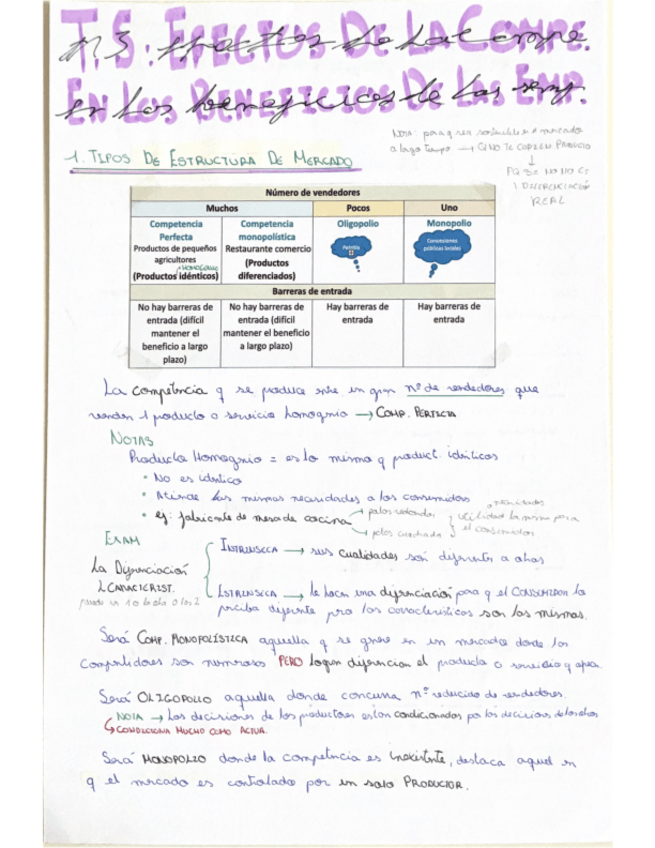 T.3: EFECTOS DE LA COMPE.
EN LOS BENEFICIOS DE LAS EMP.
NOTA para q sea sostenible el mercado
a largo tiempo → Q NO TE COPIEN PRODUCTO
↓
1 DIFERENCIACIÓN
REAL
1. TIPOS DE ESTRUCTURA DE MERCADO
Número de vendedores
Muchos Pocos Uno
Competencia Perfecta
Productos de pequeños agricultores
HOMOGÉNEO
(Productos idénticos)
Competencia monopolística
Restaurante comercio
(Productos diferenciados)
Oligopolio
Petróleo
Monopolio
Concesiones públicas locales
Barreras de entrada
No hay barreras de entrada (difícil mantener el beneficio a largo plazo)
No hay barreras de entrada (difícil mantener el beneficio a largo plazo)
Hay barreras de entrada
Hay barreras de entrada
La competencia q se produce entre un gran nº de vendedores que
venden 1 producto o servicio homogenio → COMP. PERFECTA
NOTAS
Producto Homogenio = es lo mismo q product. idénticos
• No es idéntico
• Atiende las mismas necesidades a los consumidores
• ej: fabricante de mesa de cocina → patas redondas
→ patas cuadrada
utilidad la misma para
el consumidor
EXAM
La Diferenciación
CARACTERIST.
INTRINSECA → sus cualidades son diferentes a otras
EXTRINSECA → le hacen una diferenciación para q el CONSUMIDOR lo
perciba diferente pero las características son las mismas.
Será COMP. MONOPOLÍSTICA aquella q se genere en un mercado donde los
competidores son numerosos PERO logran diferenciar el producto o servicio q
Será OLIGOPOLIO aquella donde concurra nº reducido de vendedores.
NOTA → Las decisiones de los productores estan condicionados por las decisiones de los otros
↳ CONDICIONA MUCHO COMO ACTUA.
Será MONOPOLIO donde la competencia es inexistente, destaca aquel en
q el mercado es controlado por un solo PRODUCTOR.